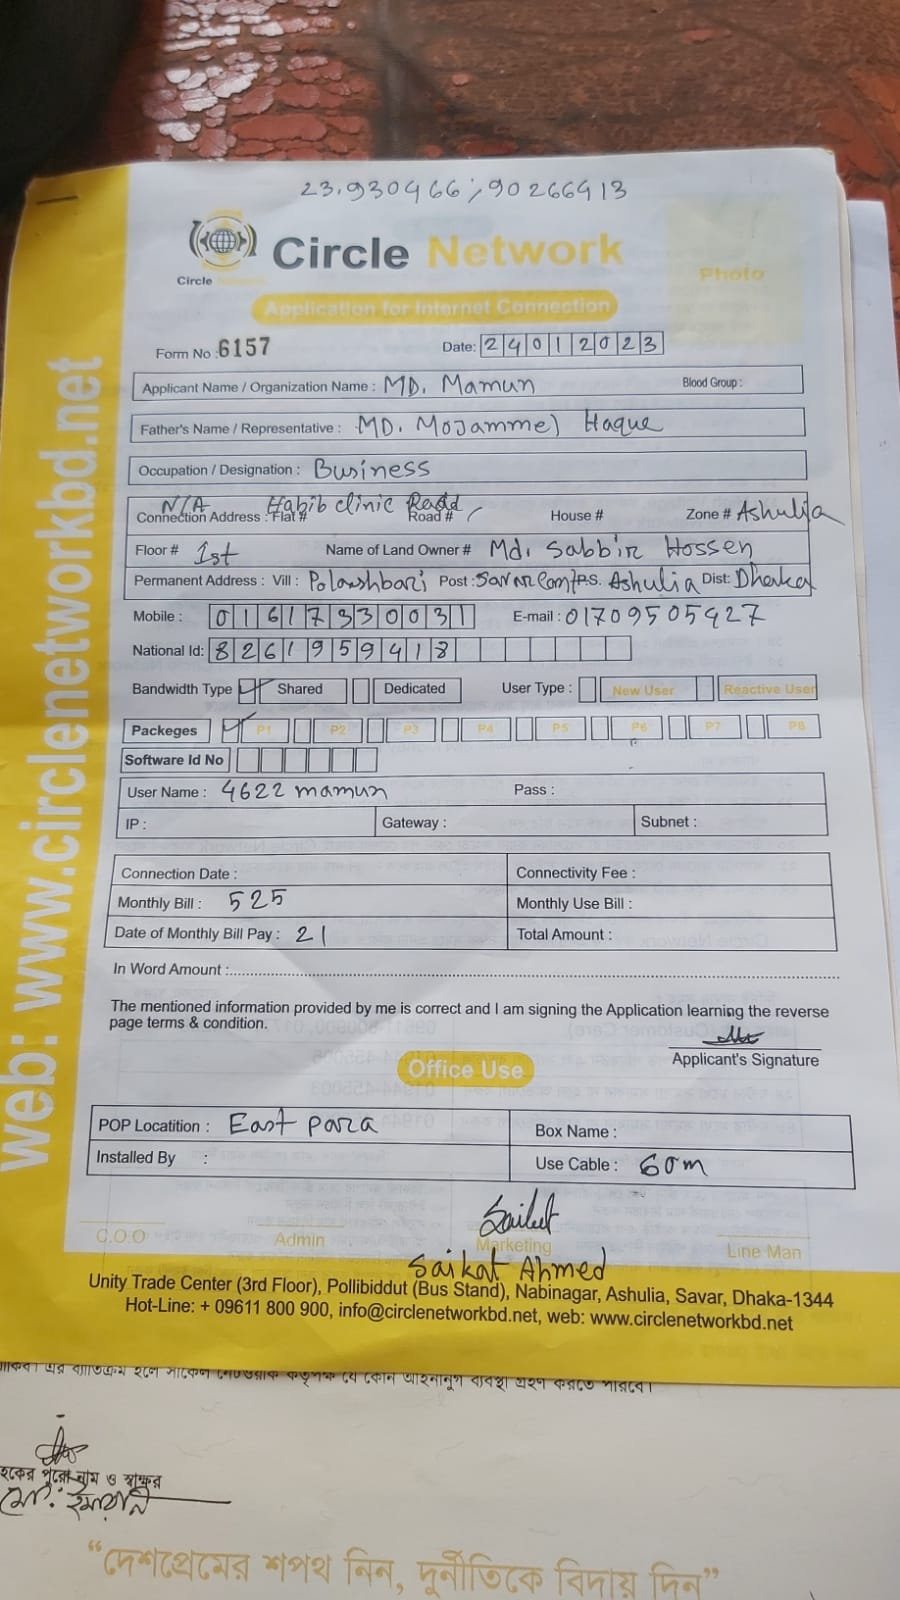 23.930466,90266413
Circle Network
Circle
Photo
Application for Internet Connection
Form No : 6157 Date: 24012023
Applicant Name / Organization Name : MD. Mamun Blood Group :
Father's Name / Representative : MD. Mojammel Haque
Occupation / Designation : Business
N/A Habib Clinic Road
Connection Address : Flat # Road # House # Zone # Ashulia
Floor # 1st Name of Land Owner # Md. Sabbir Hossen
Permanent Address : Vill : Polashbari Post : Savar Cant P.S. Ashulia Dist: Dhaka
Mobile : 01617330031 E-mail : 01709505427
National Id: 8261959418
Bandwidth Type Shared Dedicated User Type : New User Reactive User
Packeges P1 P2 P3 P4 P5 P6 P7 P8
Software Id No
User Name : 4622 mamun Pass :
IP : Gateway : Subnet :
Connection Date : Connectivity Fee :
Monthly Bill : 525 Monthly Use Bill :
Date of Monthly Bill Pay : 21 Total Amount :
In Word Amount :
The mentioned information provided by me is correct and I am signing the Application learning the reverse
page terms & condition.
Applicant's Signature
Office Use
POP Locatition : East para Box Name :
Installed By : Use Cable : 60m
Saikat
C.O.O Admin Marketing Line Man
Saikat Ahmed
Unity Trade Center (3rd Floor), Pollibiddut (Bus Stand), Nabinagar, Ashulia, Savar, Dhaka-1344
Hot-Line: + 09611 800 900, info@circlenetworkbd.net, web: www.circlenetworkbd.net
web: www.circlenetworkbd.net
ব্যবস্থা গ্রহণ করতে পারবে।
পুরো নাম ও স্বাক্ষর
“দেশপ্রেমের শপথ নিন, দুর্নীতিকে বিদায় দিন”